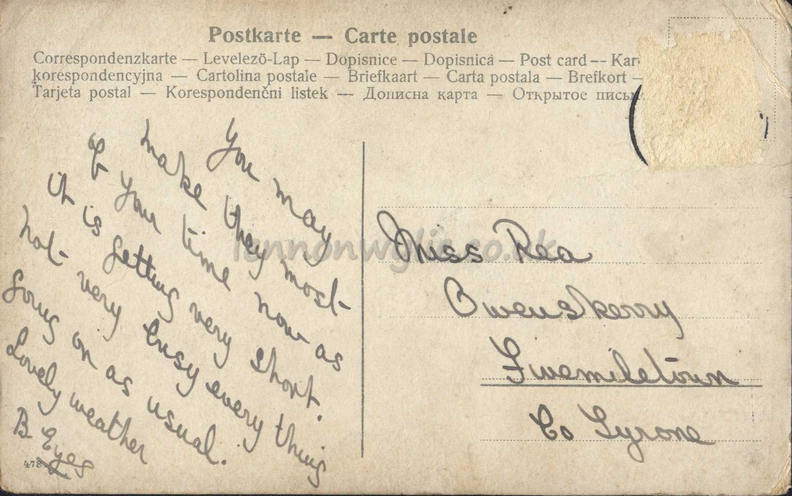 Postkarte — Carte postale
Correspondenzkarte — Levelező-Lap — Dopisnice — Dopisnica — Post card — Kar
korespondencyjna — Cartolina postale — Briefkaart — Carta postala — Brefkort —
Tarjeta postal — Korespondenční listek — Дописна карта — Открытое письм
You may
make they most
of your time now as
it is getting very short.
not very busy every thing
going on as usual.
Lovely weather
B. Eyes
478
lennonwylie.co.uk
Miss Rea
Owenskerry
Fivemiletown
Co Tyrone